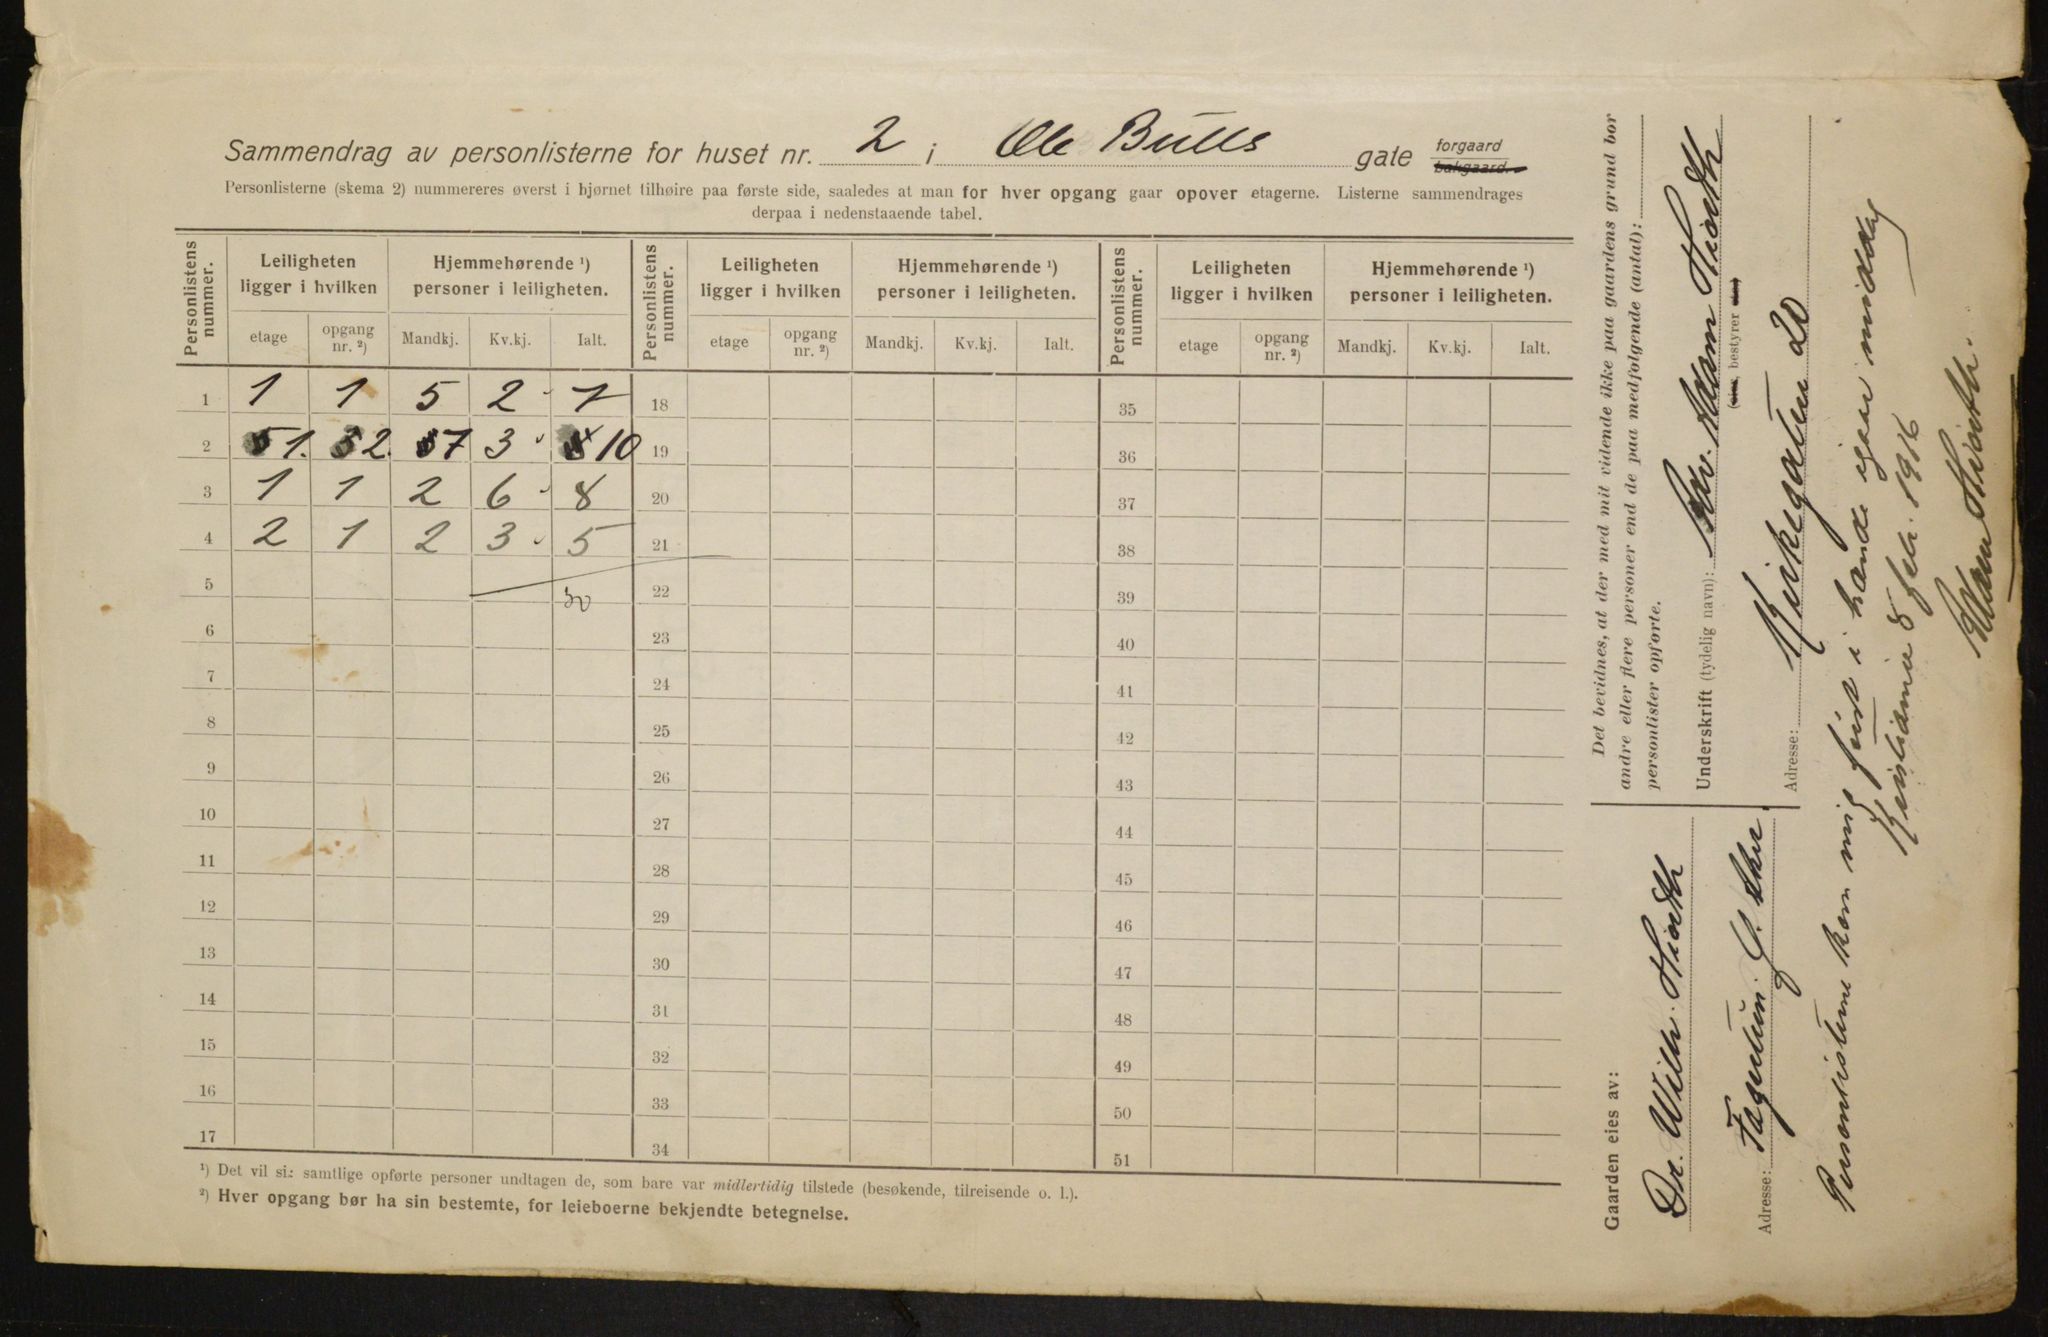 Sammendrag av personlisterne for huset nr. 2 i Ole Bulls gate forgaard bakgaard.
Personlisterne (skema 2) nummereres øverst i hjørnet tilhøire paa første side, saaledes at man for hver opgang gaar opover etagerne. Listerne sammendrages
derpaa i nedenstaaende tabel.
Personlistens nummer. Leiligheten ligger i hvilken Hjemmehørende ¹) personer i leiligheten. Personlistens nummer. Leiligheten ligger i hvilken Hjemmehørende ¹) personer i leiligheten. Personlistens nummer. Leiligheten ligger i hvilken Hjemmehørende ¹) personer i leiligheten.
etage opgang nr. ²) Mandkj. Kv.kj. Ialt. etage opgang nr. ²) Mandkj. Kv.kj. Ialt. etage opgang nr. ²) Mandkj. Kv.kj. Ialt.
1 1 1 5 2 7 18 35
2 1. 2. 7 3 10 19 36
3 1 1 2 6 8 20 37
4 2 1 2 3 5 21 38
5 30 22 39
6 23 40
7 24 41
8 25 42
9 26 43
10 27 44
11 28 45
12 29 46
13 30 47
14 31 48
15 32 49
16 33 50
17 34 51
¹) Det vil si: samtlige opførte personer undtagen de, som bare var midlertidig tilstede (besøkende, tilreisende o. l.).
²) Hver opgang bør ha sin bestemte, for leieboerne bekjendte betegnelse.
Det bevidnes, at der med mit vidende ikke paa gaardens grund bor
andre eller flere personer end de paa medfølgende (antal):
personlister opførte.
Underskrift (tydelig navn): Adv. Adam Hiorth
(eier, bestyrer eier)
Adresse: Kirkegaten 20
Gaarden eies av:
Dr. Wilh. Hiorth
Adresse: Fagertun. V. Aker
Personlisterne kom mig først i hænde igaar middag
Kristiania 8 febr. 1916
Adam Hiorth.